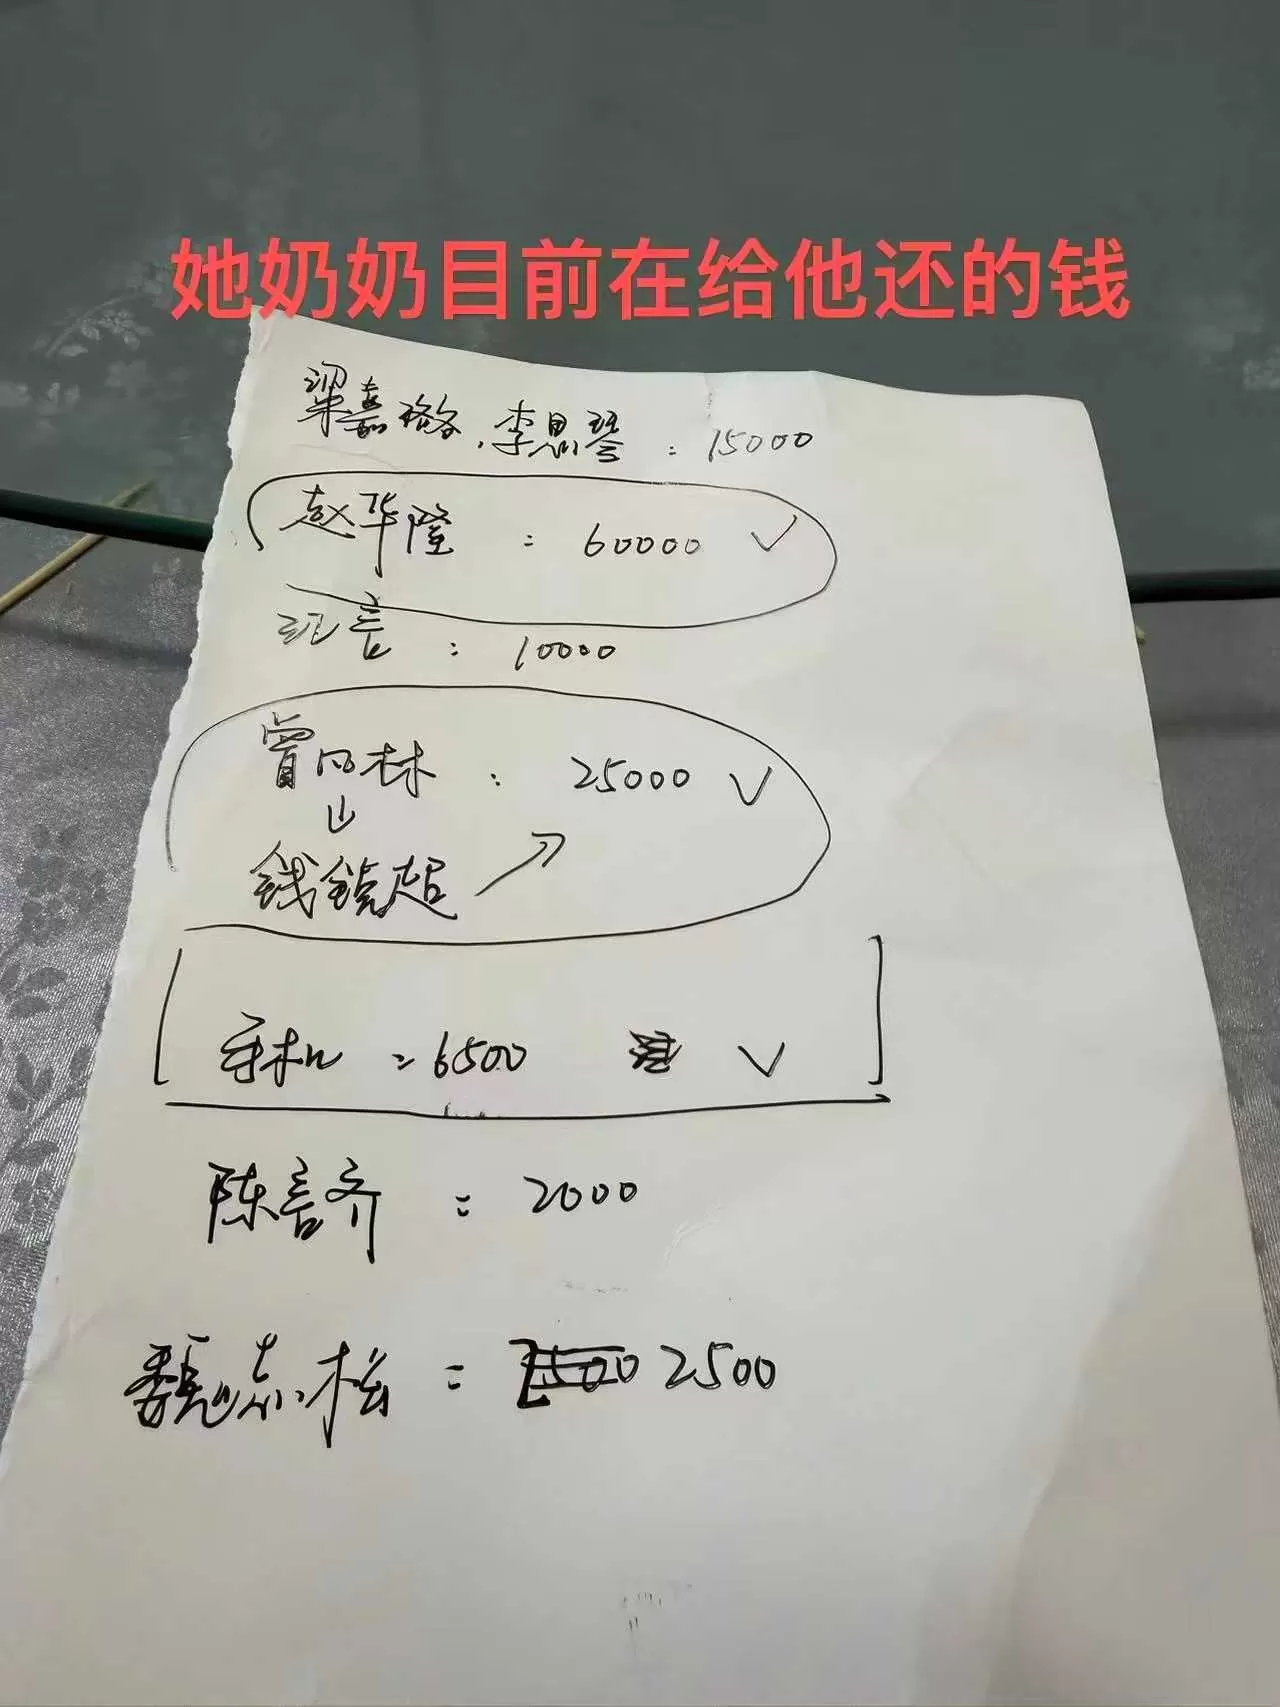 她奶奶目前在给他还的钱
梁嘉璐、李思琴：15000
赵华隆：60000 ✓
班言：10000
曾凡林：25000 ✓
↓
钱锐超 ↗
手机：6500 ✓
陈言齐：2000
魏志松：2500